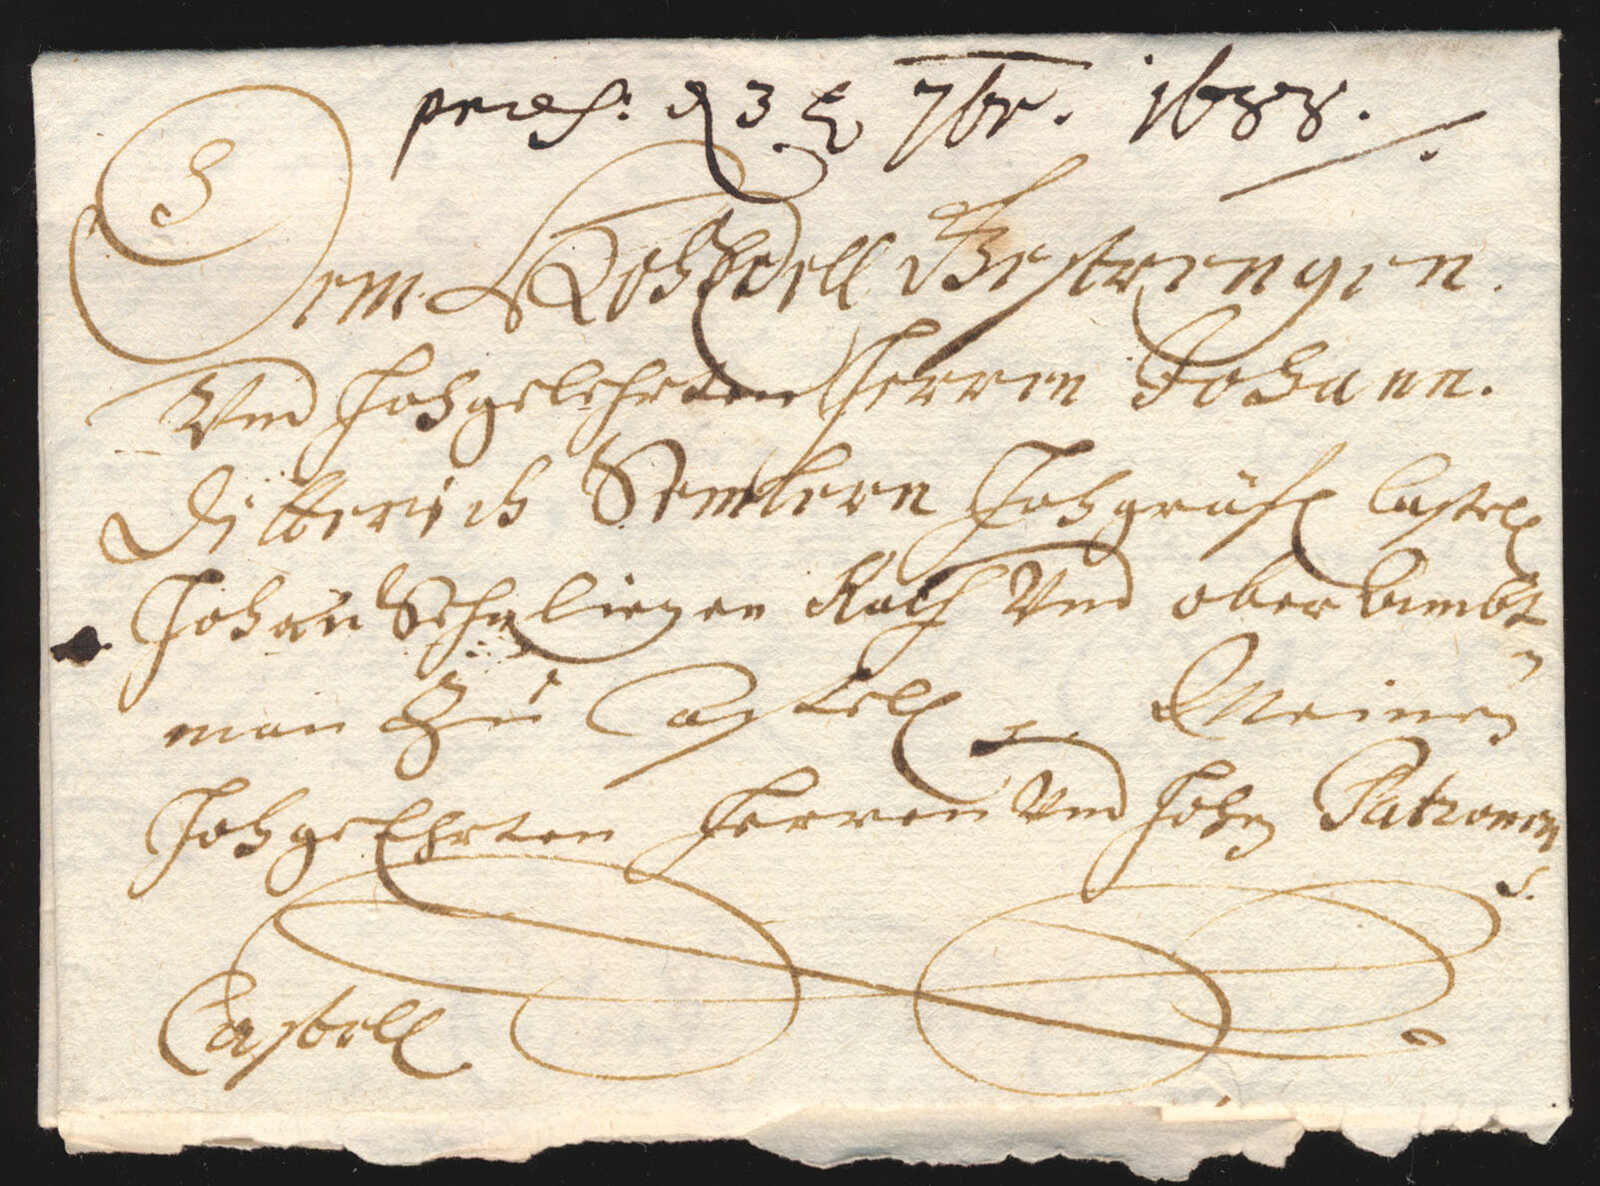 præs: d 3 7br. 1688.
Dem WohlEdell Gestrengen.
Vnd Hochgelehrten Herren Johann.
Ditterich Semlern Hochgräfl Castell
Hochan Sehnlichen Rath Vnd oberambt
man Zu Castell Meinen
HochgeEhrten Herren Vnd Hohen Patronen
Castell